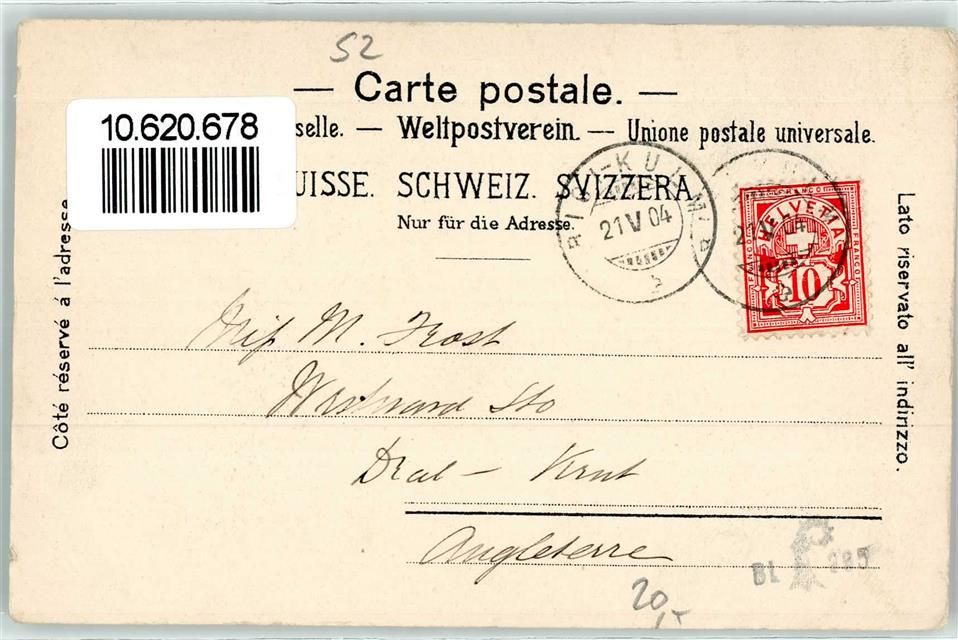 52
— Carte postale. —
10.620.678
selle. — Weltpostverein. — Unione postale universale.
UISSE. SCHWEIZ. SVIZZERA.
Nur für die Adresse.
RIGI-KULM
21 V 04
FRANCO
HELVETIA
FRANCO
FRANCO
10
Côté réservé á l'adresse
Lato riservato all' indirizzo.
Miſs M. Frost
Westward Ho
Deal – Kent
Angleterre
BL 285
20,-